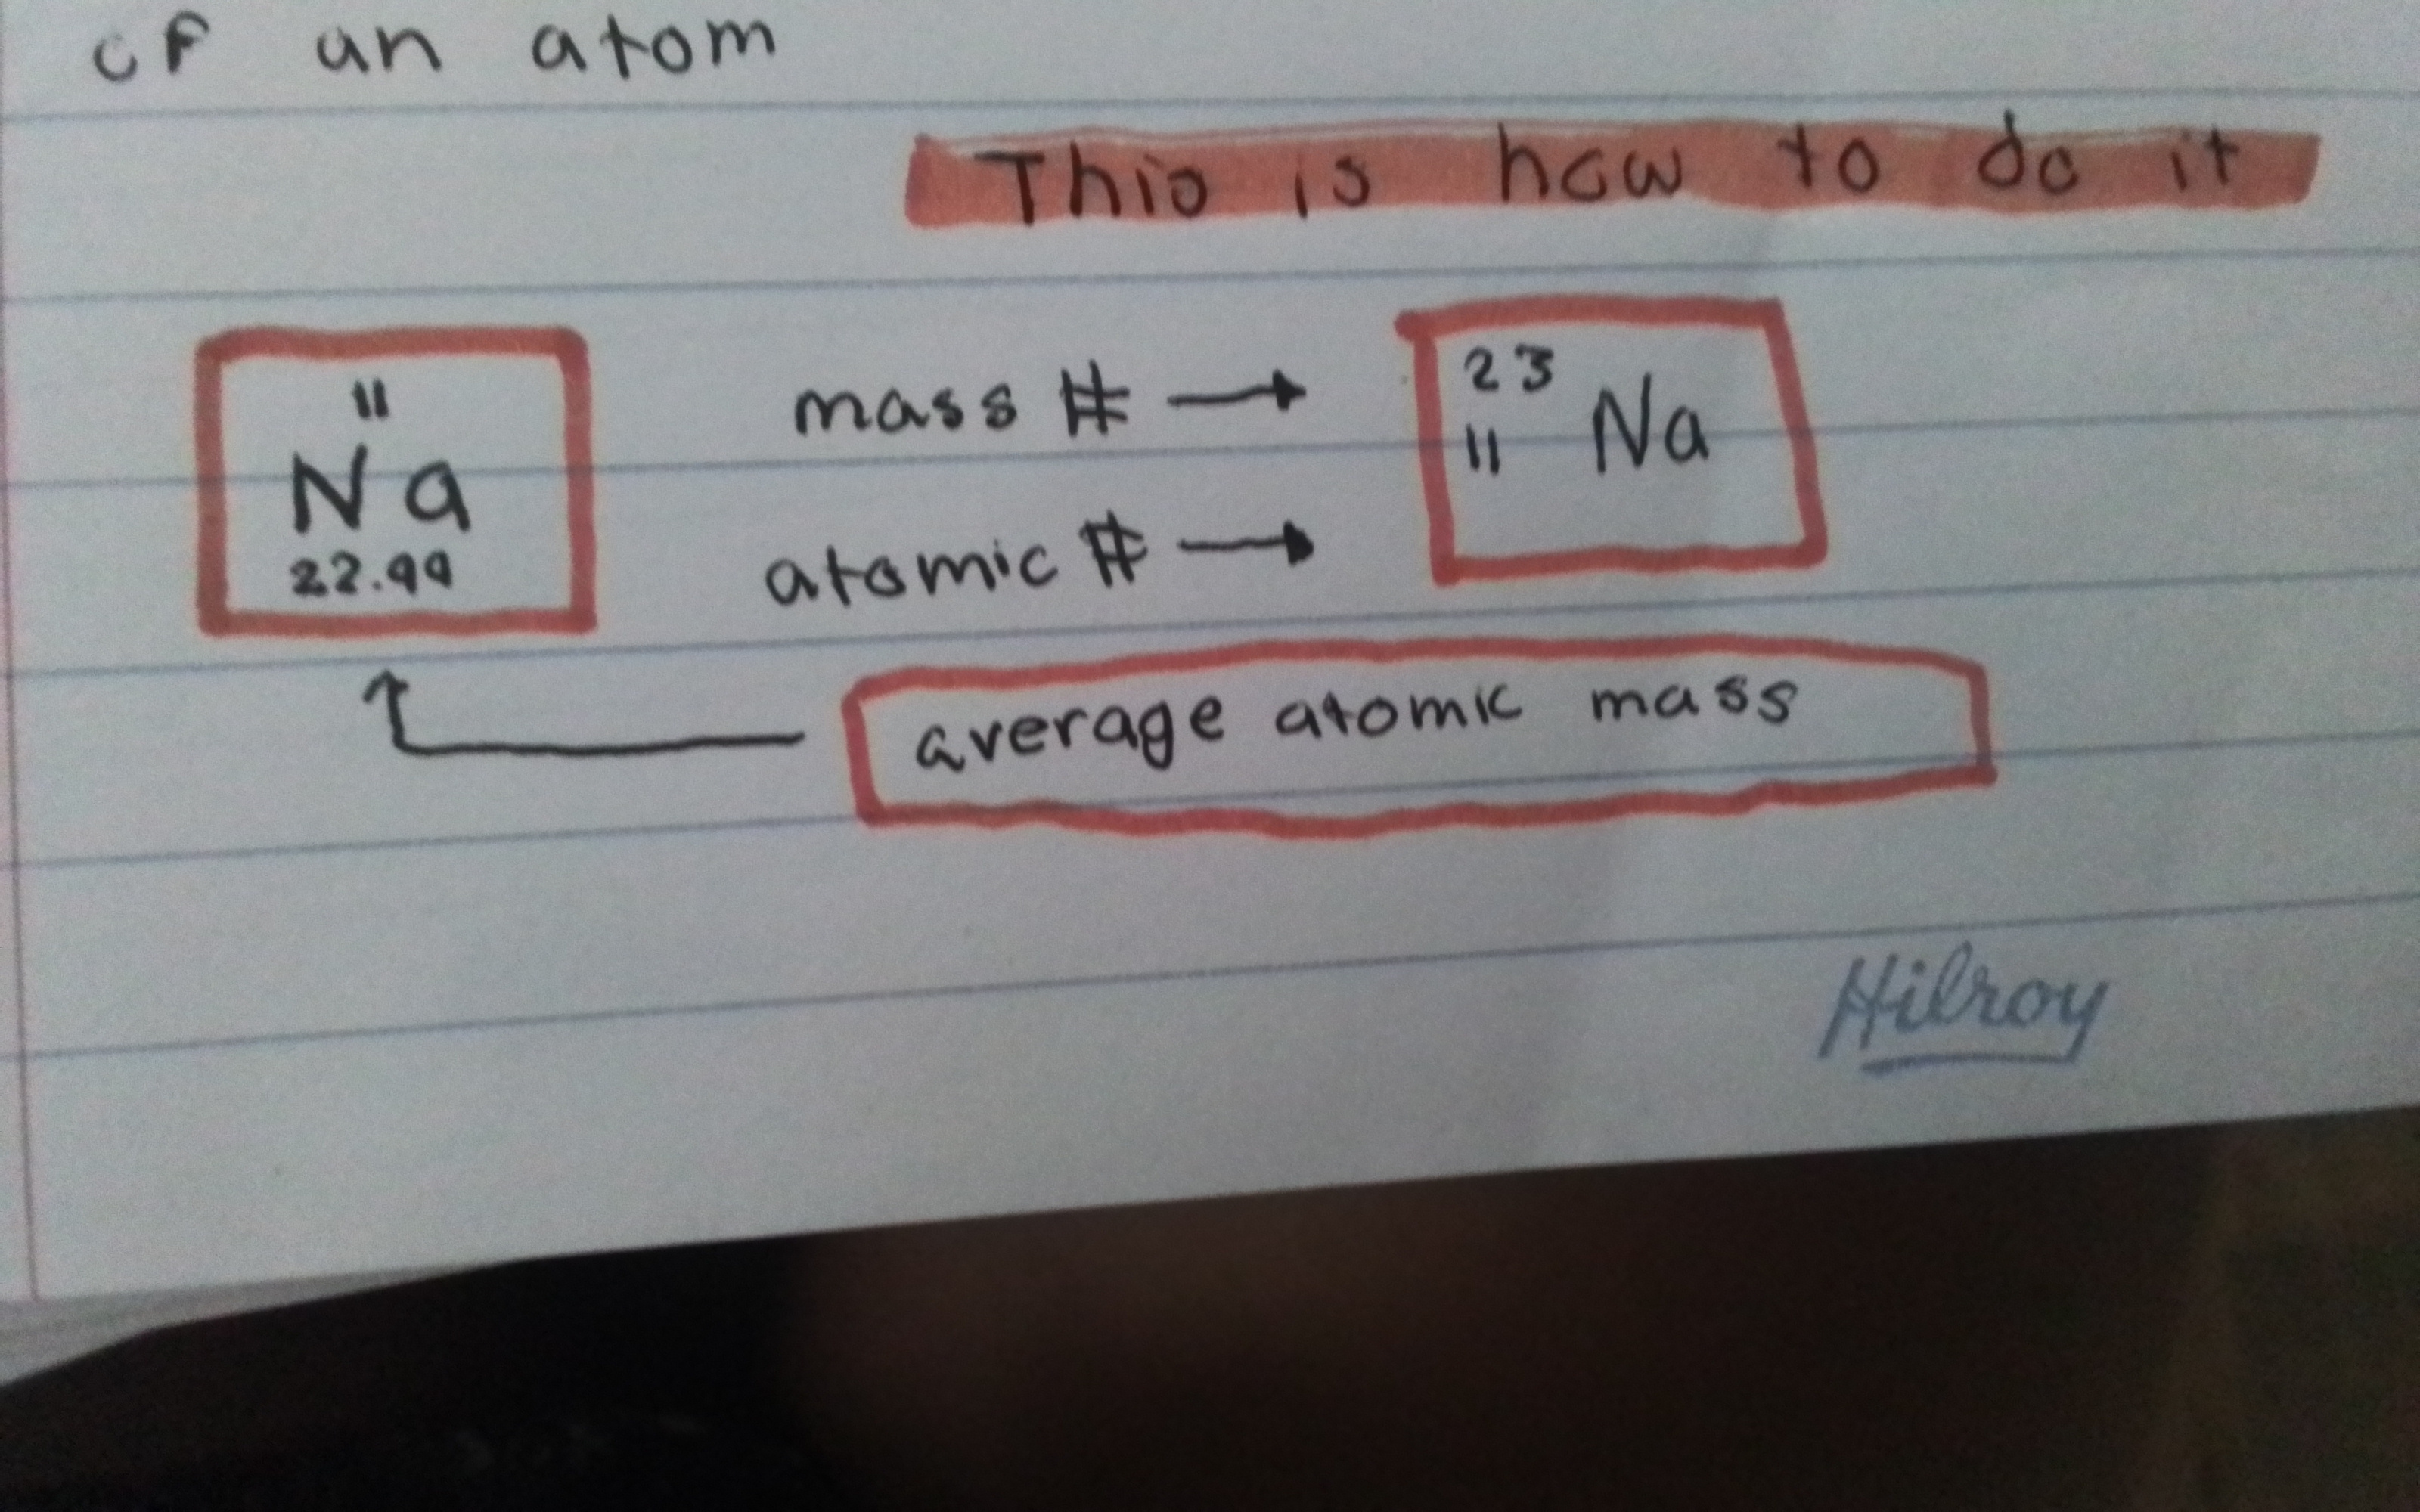 of an atom
This is how to do it
11
Na
22.99
mass # →
atomic # →
23
11 Na
average atomic mass
Hilroy